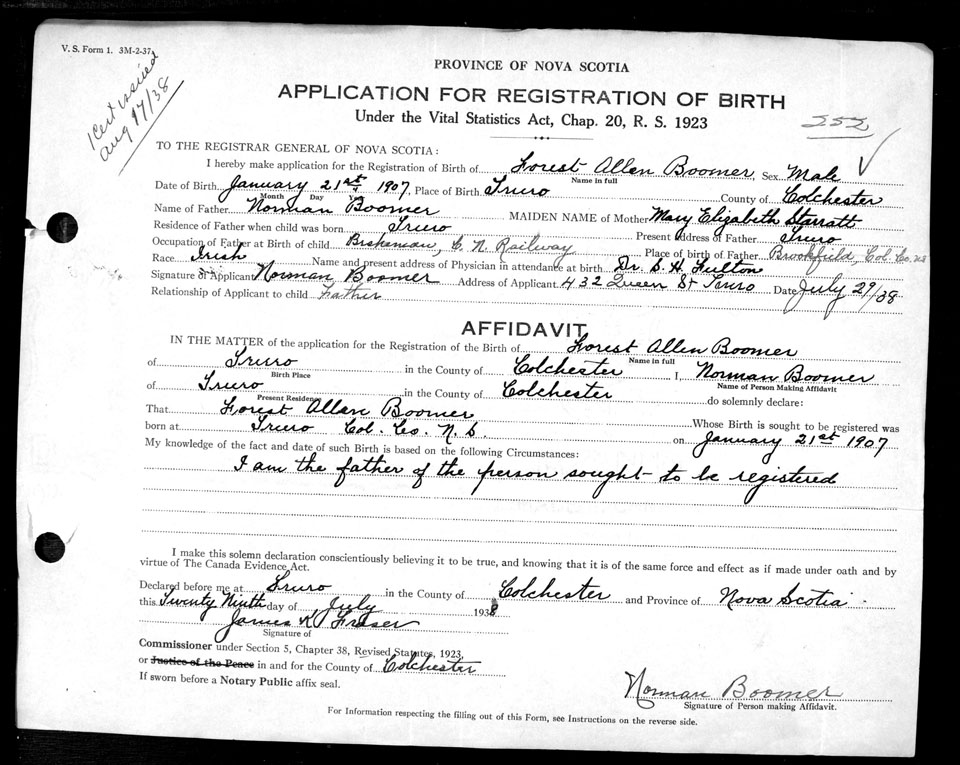 V. S. Form 1. 3M-2-37.
Cert issued
Aug 17/38
PROVINCE OF NOVA SCOTIA
APPLICATION FOR REGISTRATION OF BIRTH
Under the Vital Statistics Act, Chap. 20, R. S. 1923
252
TO THE REGISTRAR GENERAL OF NOVA SCOTIA:
I hereby make application for the Registration of Birth of Forest Allen Boomer, Sex Male
Name in full
Date of Birth January 21st 1907, Place of Birth Truro County of Colchester
Month Day
Name of Father Norman Boomer MAIDEN NAME of Mother Mary Elizabeth Starratt
Residence of Father when child was born Truro Present address of Father Truro
Occupation of Father at Birth of child Brakeman, C. N. Railway Place of birth of Father Brookfield, Col. Co. N.S
Race Irish Name and present address of Physician in attendance at birth Dr. S. H. Fulton
Signature of Applicant Norman Boomer Address of Applicant 432 Queen St Truro Date July 29/38
Relationship of Applicant to child Father
AFFIDAVIT
IN THE MATTER of the application for the Registration of the Birth of Forest Allen Boomer
Name in full
of Truro in the County of Colchester I, Norman Boomer
Birth Place Name of Person Making Affidavit
of Truro in the County of Colchester do solemnly declare:
Present Residence
That Forest Allen Boomer Whose Birth is sought to be registered was
born at Truro Col. Co. N.S. on January 21st 1907
My knowledge of the fact and date of such Birth is based on the following Circumstances:
I am the father of the person sought to be registered
I make this solemn declaration conscientiously believing it to be true, and knowing that it is of the same force and effect as if made under oath and by
virtue of The Canada Evidence Act.
Declared before me at Truro in the County of Colchester and Province of Nova Scotia
this Twenty Ninth day of July 1938
James K Fraser
Signature of
Commissioner under Section 5, Chapter 38, Revised Statutes, 1923,
or Justice of the Peace in and for the County of Colchester
If sworn before a Notary Public affix seal.
Norman Boomer
Signature of Person making Affidavit.
For Information respecting the filling out of this Form, see Instructions on the reverse side.